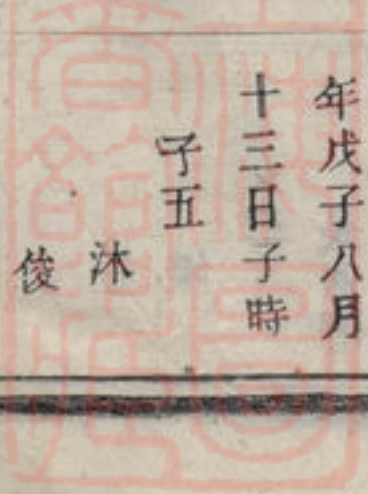 年戊子八月
十三日子時
子五
沐
俊